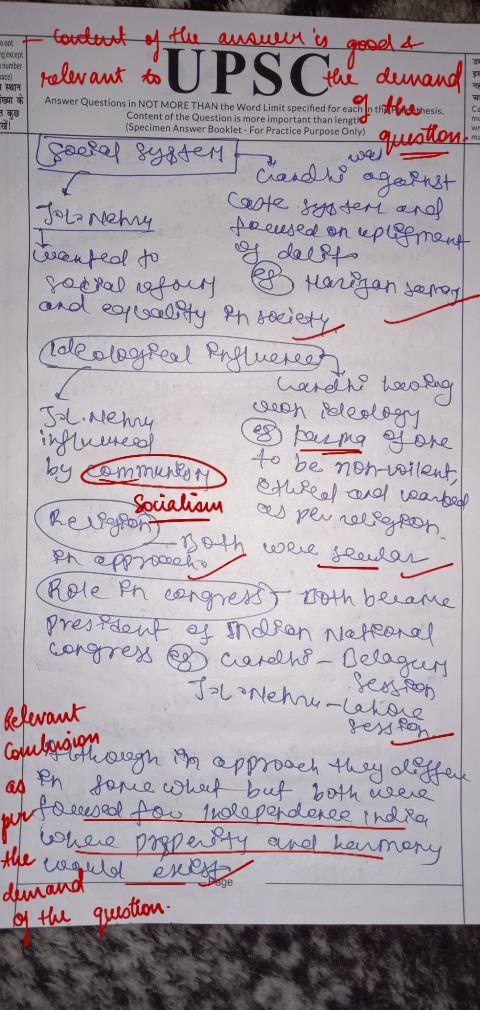 - content of the answer is good &
relevant to the demand
of the
question.
UPSC
Answer Questions in NOT MORE THAN the Word Limit specified for each in the Parenthesis.
Content of the Question is more important than length.
(Specimen Answer Booklet - For Practice Purpose Only)
Social System
Gandhi was against
caste system and
focused on upligment
of dalits
eg Harijan
J.L. Nehru
wanted to
social
and equality in society
Ideological influence
Gandhi having
own ideology
eg Karma of one
to be non-voilent,
ethical and wanted
as per religion.
J.L. Nehru
influenced
by communism
Socialism
Religion - Both were secular
in approach.
Role in congress - Both became
president of Indian National
congress eg Gandhi - Belagum
session
J.L. Nehru - Lahore
session
Relevant
Conclusion
as
per
the
demand
of the question.
Although in approach they differ
in some what but both were
focused for independence india
where and harmony
would exist.
Page